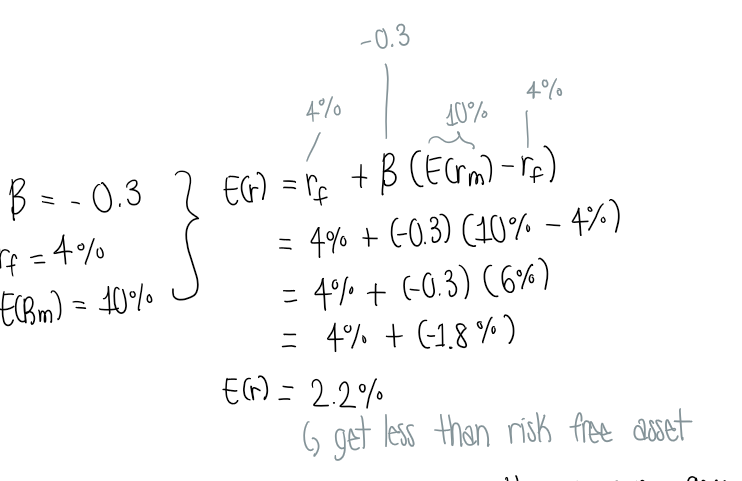 -0.3
4%
10%
4%
β = - 0.3
rf = 4%
E(Bm) = 10%
E(r) = rf + β (E(rm) - rf)
= 4% + (-0.3) (10% - 4%)
= 4% + (-0.3) (6%)
= 4% + (-1.8%)
E(r) = 2.2%
↳ get less than risk free asset